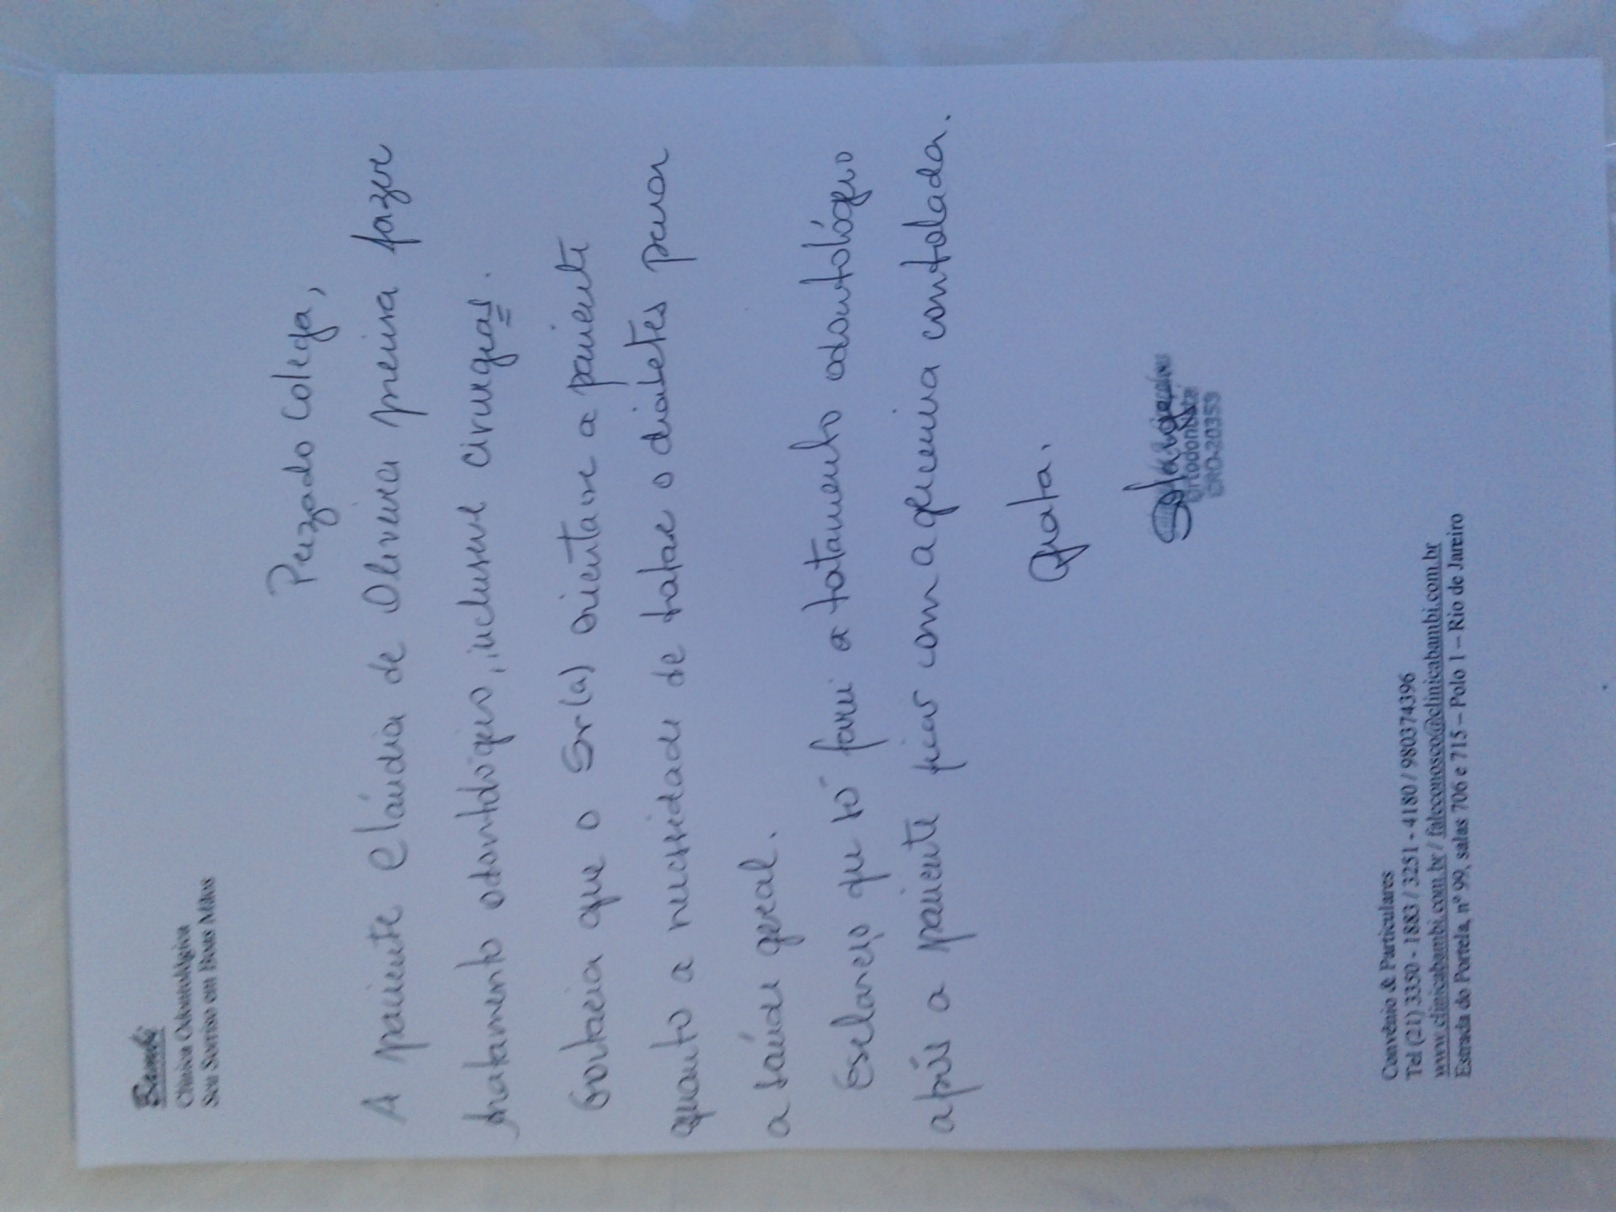 Bambi
Clínica Odontológica
Seu Sorriso em Boas Mãos
Prezado Colega,
A paciente Cláudia de Oliveira precisa fazer
tratamento odontológico, inclusive cirurgias.
Gostaria que o Sr(a) orientasse a paciente
quanto a necessidade de tratar o diabetes para
a saúde geral.
Esclareço que só farei o tratamento odontológico
após a paciente ficar com a glicemia controlada.
Grata.
Ortodontista
CRO-20353
Convênio & Particulares
Tel (21) 3350 - 1883 / 3251 - 4180 / 980374396
www.clinicabambi.com.br / faleconosco@clinicabambi.com.br
Estrada do Portela, nº 99, salas 706 e 715 – Polo 1 – Rio de Janeiro